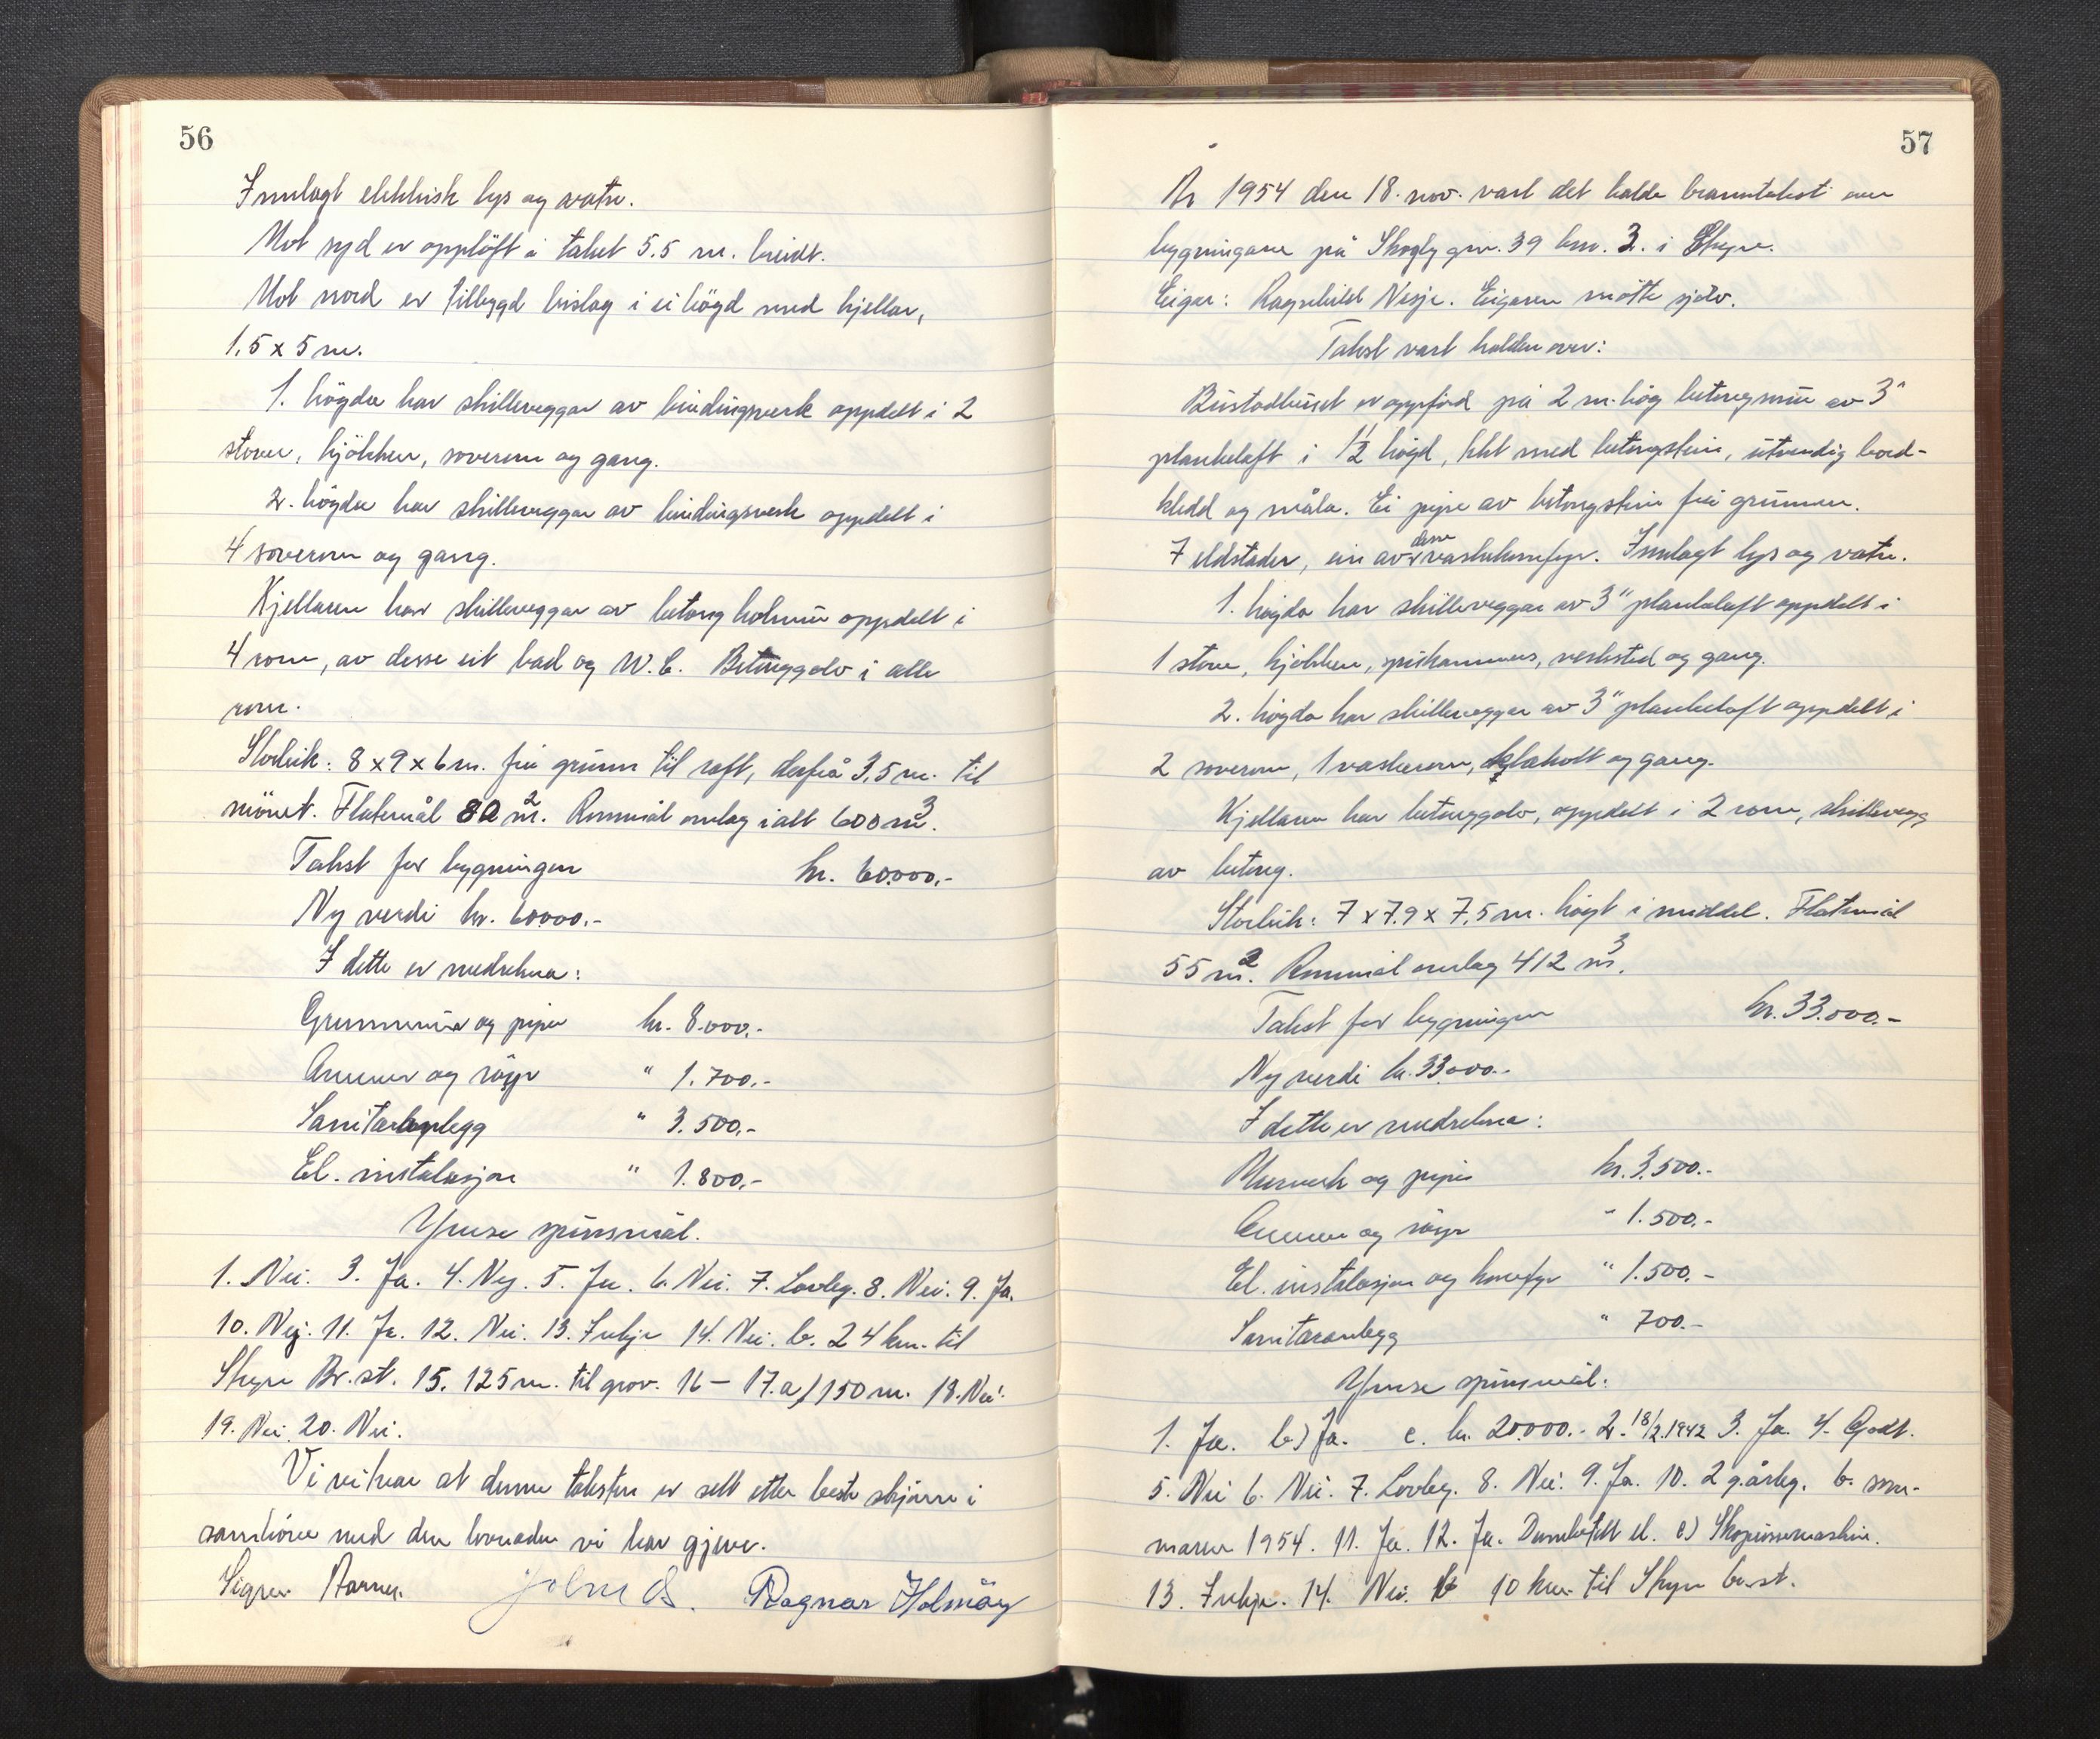 56
Innlagt elektrisk lys og vatn.
Mot syd er opplöft i taket 5.5 m. breidt.
Mot nord er tilbygd bislag i ei högd med kjellar,
1.5 x 5 m.
1. högda har skilleveggar av bindingsverk oppdelt i 2
stover, kjökken, soverom og gang.
2. högda har skilleveggar av bindingsverk oppdelt i
4 soverom og gang.
Kjellaren har skilleveggar av betong holmur oppdelt i
4 rom, av desse eit bad og W.C. Betonggolv i alle
rom.
Storleik: 8 x 9 x 6 m. frå grunn til raft, derfrå 3,5 m. til
mönet. Flatemål 82 m². Rommål omlag ialt 600 m³.
Takst for bygningen kr. 60.000,-
Ny verdi kr. 60.000.-
I dette er medrekna:
Grunnmur og pipe kr. 8.000.-
Omner og röyr " 1.700.-
Sanitæranlegg " 3.500,-
El. instalasjon " 1.800,-
Ymse spursmål.
1. Nei. 3. Ja. 4. Ny. 5. Ja. 6. Nei. 7. Lovleg. 8. Nei. 9. Ja.
10. Nei. 11. Ja. 12. Nei. 13. Inkje 14. Nei. b. 24 km. til
Skyen Br.st. 15. 125 m. til grov. 16 — 17. a/150 m. 18. Nei.
19. Nei. 20. Nei.
Vi vitnar at denne taksten er sett etter beste skjönn i
samhöve med den lovnaden vi har gjeve.
Signar Aarnes. John Ragnar Holmöy
57
År 1954 den 18. nov. vart det halde branntakst over
bygningane på Skogly gnr. 39 bnr. 3. i Skyen.
Eigar: Ragnhild Nesje. Eigaren mötte sjölv.
Takst vart halden over:
Bustadhuset er oppförd på 2 m. hög betongmur av 3"
plankelaft i 1 1/2 högd, tekt med betongstein, utvendig bord-
kledd og måla. Ei pipe av betongstein frå grunnen.
7 eldstader, ein av desse vaskekomfyr. Innlagt lys og vatn.
1. högda har skilleveggar av 3" plankelaft oppdelt i
1 stove, kjökken, spiskammers, verksted og gang.
2. högda har skilleveggar av 3" plankelaft oppdelt i
2 soverom, 1 vaskerom, kglakott og gang.
Kjellaren har betonggolv, oppdelt i 2 rom, skillevegg
av betong.
Storleik: 7 x 7.9 x 7,5 m. högt i middel. Flatemål
55 m². Rommål omlag 412 m³.
Takst for bygningen kr. 33.000.-
Ny verdi kr. 33.000.-
I dette er medrekna:
Murverk og pipe kr. 3.500.-
Omner og röyr " 1.500.-
El. instalasjon og komfyr " 1.500.-
Sanitæranlegg " 700.-
Ymse spursmål:
1. Ja. b) Ja. c. kr. 20.000.- 2. 18/2.1942 3. Ja. 4. Godt.
5. Nei 6. Nei. 7. Lovleg. 8. Nei. 9. Ja. 10. 2 g. årleg. b. som-
maren 1954. 11. Ja. 12. Ja. el. c) Skopussemaskin.
13. Inkje. 14. Nei. b 10 km. til Skyen br.st.